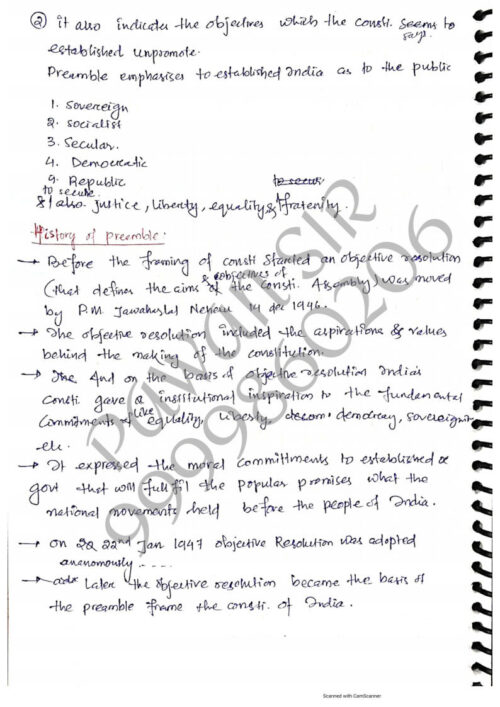 ② it also indicates the objectives which the consti. seems to says.
established unpromote.
Preamble emphasises to established India as to the public
1. Sovereign
2. socialist
3. Secular.
4. Democratic
9. Republic
to secure
to secure
& also justice, liberty, equality & fratenity.
History of preamble.
→ Before the framing of consti started an objective resolution
& objectives of
(that defines the aims of the Consti. Assembly) was moved
by P.M. Jawaharlal Nehru 14 dec 1946.
→ The objective resolution included the aspirations & values
behind the making of the constitution.
→ The And on the basis of objective resolution India's
consti gave a institutional inspiration to the fundamental
commitments of like equality, liberty, decom. democracy, sovereignity
etc.
→ It expressed the moral committments to established a
govt that will fullfil the popular promises what the
national movements held before the people of India.
→ on 22 22nd Jan 1947 objective Resolution was adopted
ananomously .....
→ Later the objective resolution became the basis of
the preamble frame the consti. of India.
Pawan SIR
9999860206
Scanned with CamScanner